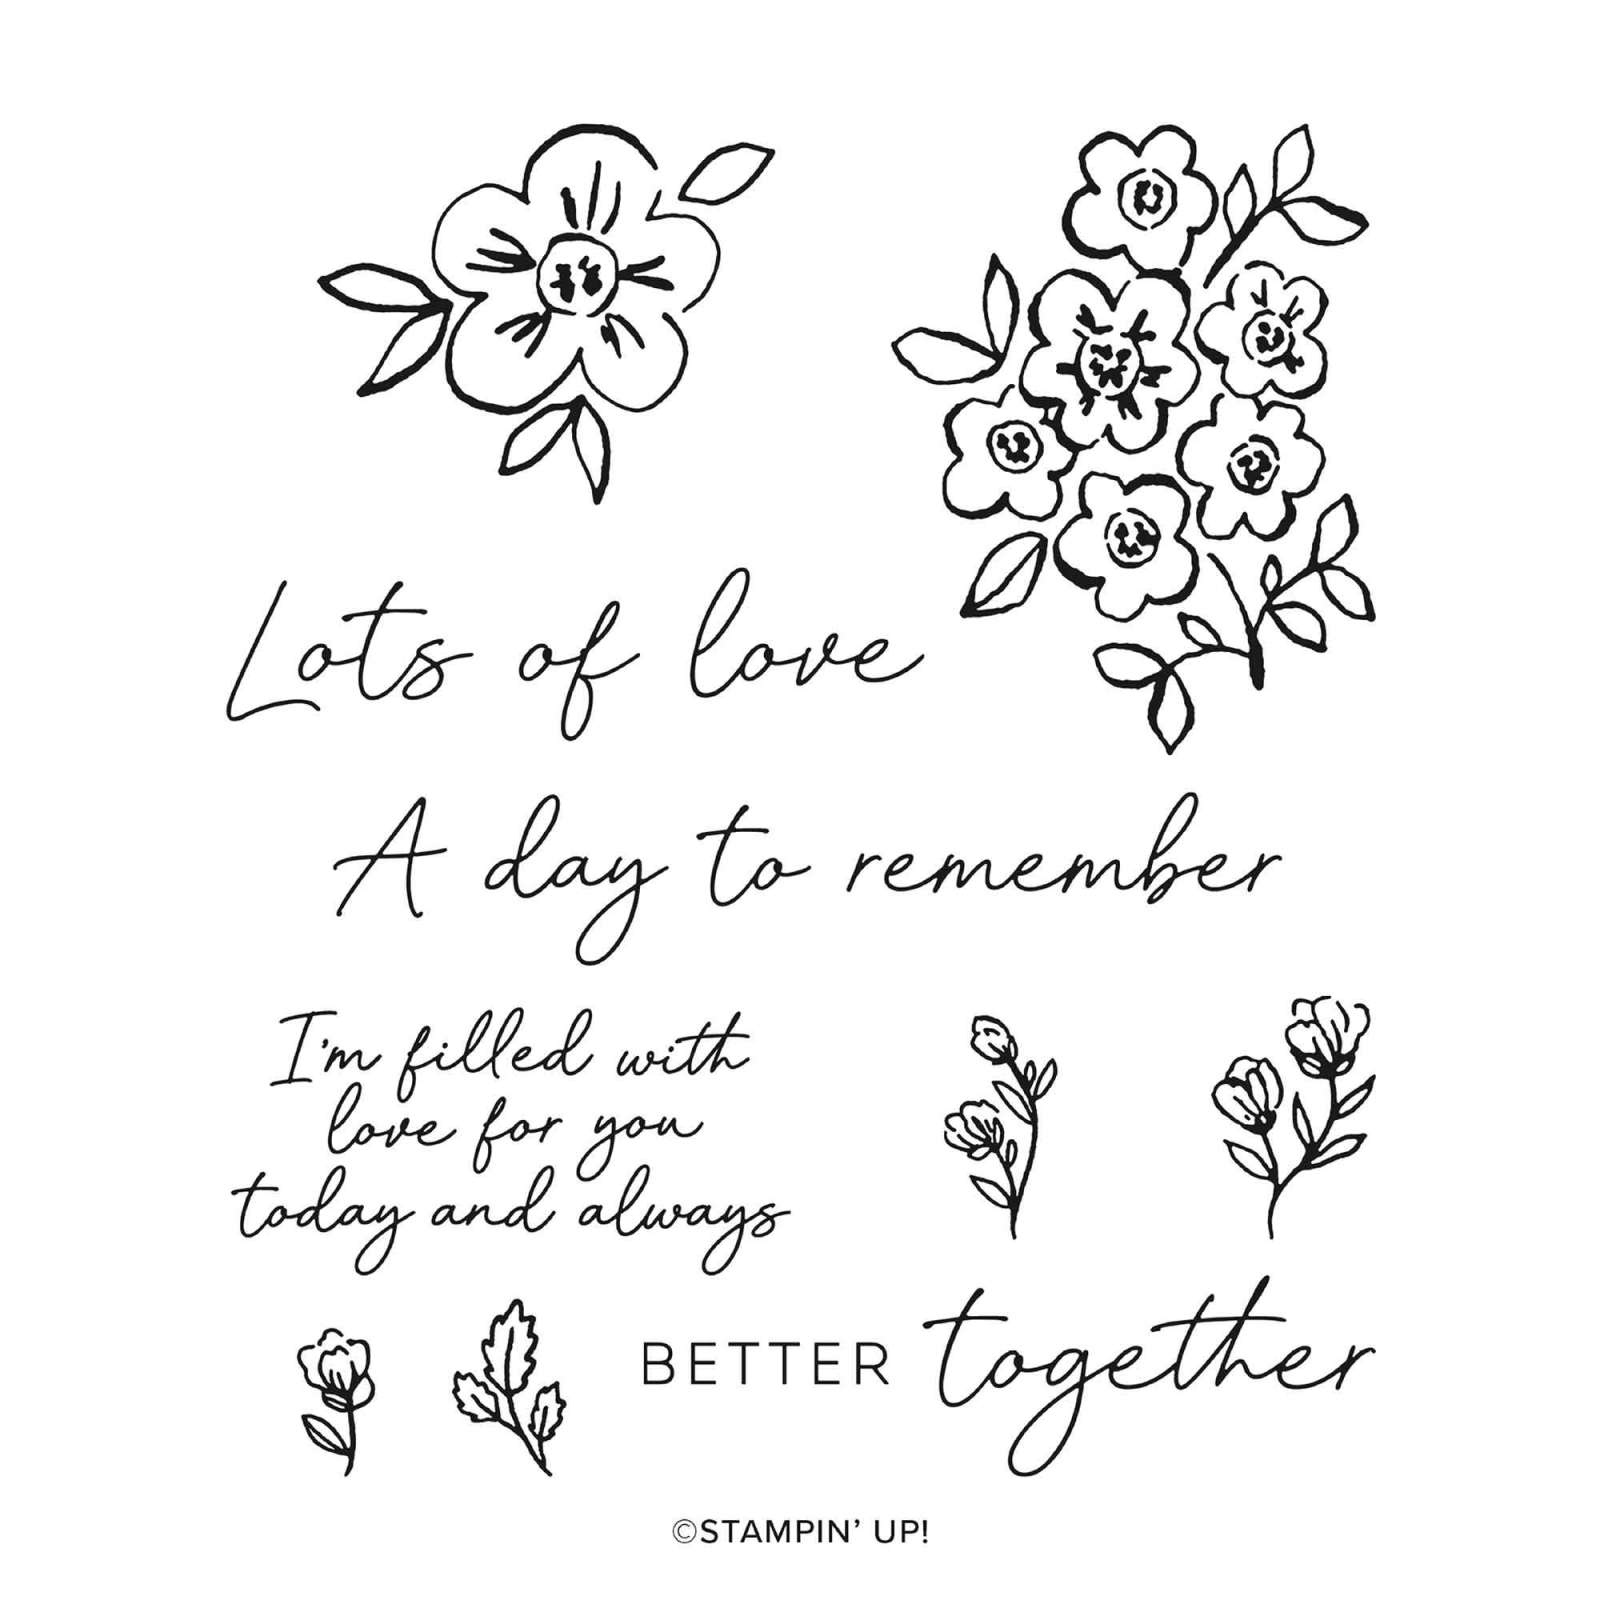 Lots of love
A day to remember
I'm filled with
love for you
today and always
BETTER together
©STAMPIN' UP!